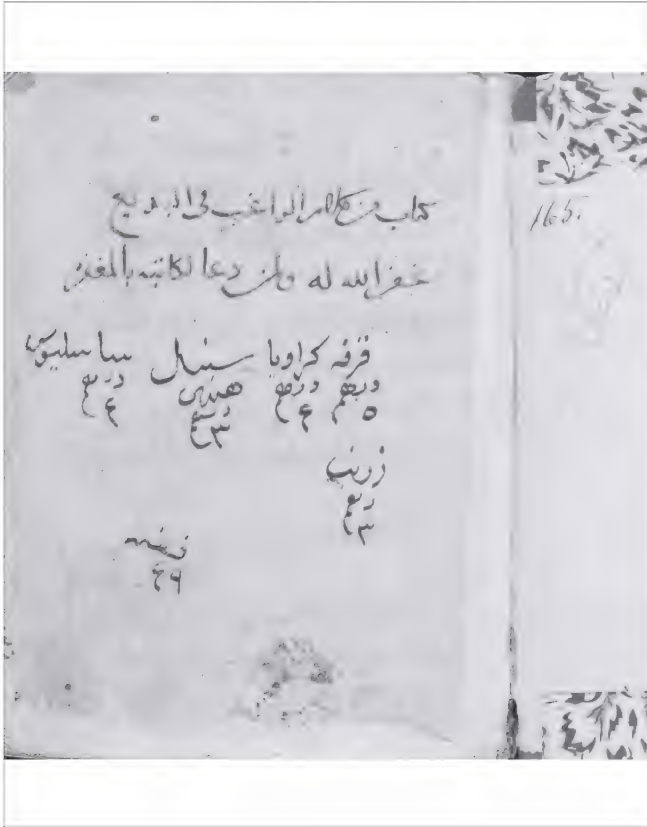 كتاب من كلام الراغب في البديع
غفر الله له ولمن دعا لكاتبه بالمغفرة
قرفه كراويا سنبل ساساليوس
درهم درهم هندي درهم
٥ ٤ درهم ٤
٣
زرنب
درهم
٣
فضه
٤٩
165.